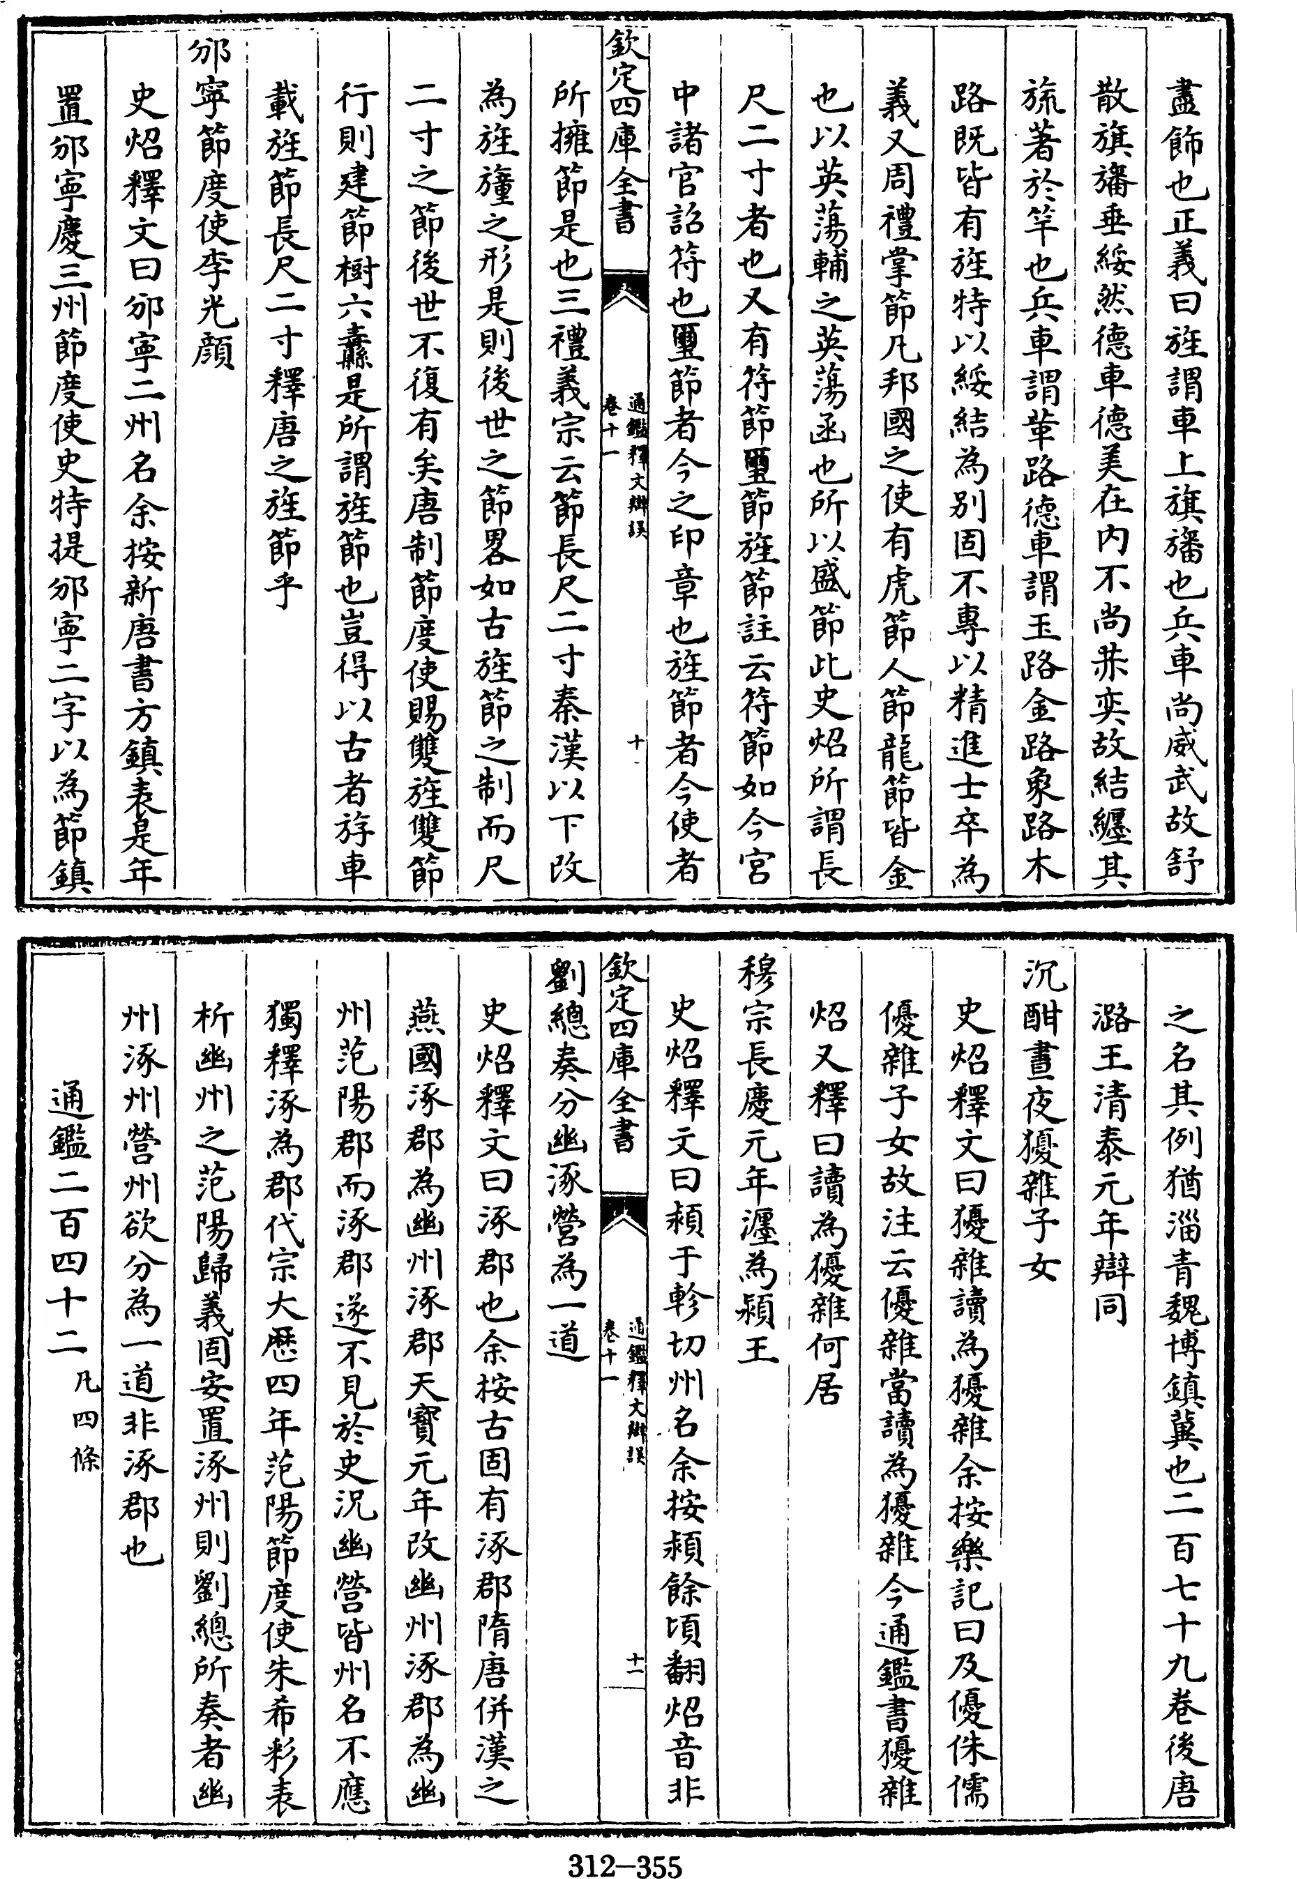 盡飾也正義曰旌謂車上旗旛也兵車尚威武故舒
散旗旛垂綏然德車德美在内不尚赫奕故結纒其
旒著於竿也兵車謂革路德車謂玉路金路象路木
路既皆有旌特以綏結為别固不專以精進士卒為
義又周禮掌節凡邦國之使有虎節人節龍節皆金
也以英蕩輔之英蕩函也所以盛節此史炤所謂長
尺二寸者也又有符節璽節旌節註云符節如今宮
中諸官詔符也璽節者今之印章也旌節者今使者
欽定四庫全書
通鑑釋文辯誤
卷十一
十
所擁節是也三禮義宗云節長尺二寸秦漢以下改
為旌幢之形是則後世之節畧如古旌節之制而尺
二寸之節後世不復有矣唐制節度使賜雙旌雙節
行則建節樹六纛是所謂旌節也豈得以古者斿車
載旌節長尺二寸釋唐之旌節乎
邠寧節度使李光顔
史炤釋文曰邠寧二州名余按新唐書方鎮表是年
置邠寧慶三州節度使史特提邠寧二字以為節鎮
之名其例猶淄青魏博鎮冀也二百七十九卷後唐
潞王清泰元年辯同
沉酣晝夜獶雜子女
史炤釋文曰獶雜讀為獶雜余按樂記曰及優侏儒
優雜子女故注云優雜當讀為獶雜今通鑑書獶雜
炤又釋曰讀為獶雜何居
穆宗長慶元年瀍為潁王
史炤釋文曰頴于軫切州名余按頴餘頃翻炤音非
欽定四庫全書
通鑑釋文辯誤
卷十一
十一
劉總奏分幽涿營為一道
史炤釋文曰涿郡也余按古固有涿郡隋唐併漢之
燕國涿郡為幽州涿郡天寳元年改幽州涿郡為幽
州范陽郡而涿郡遂不見於史况幽營皆州名不應
獨釋涿為郡代宗大歴四年范陽節度使朱希彩表
析幽州之范陽歸義固安置涿州則劉總所奏者幽
州涿州營州欲分為一道非涿郡也
通鑑二百四十二凡四條
312-355